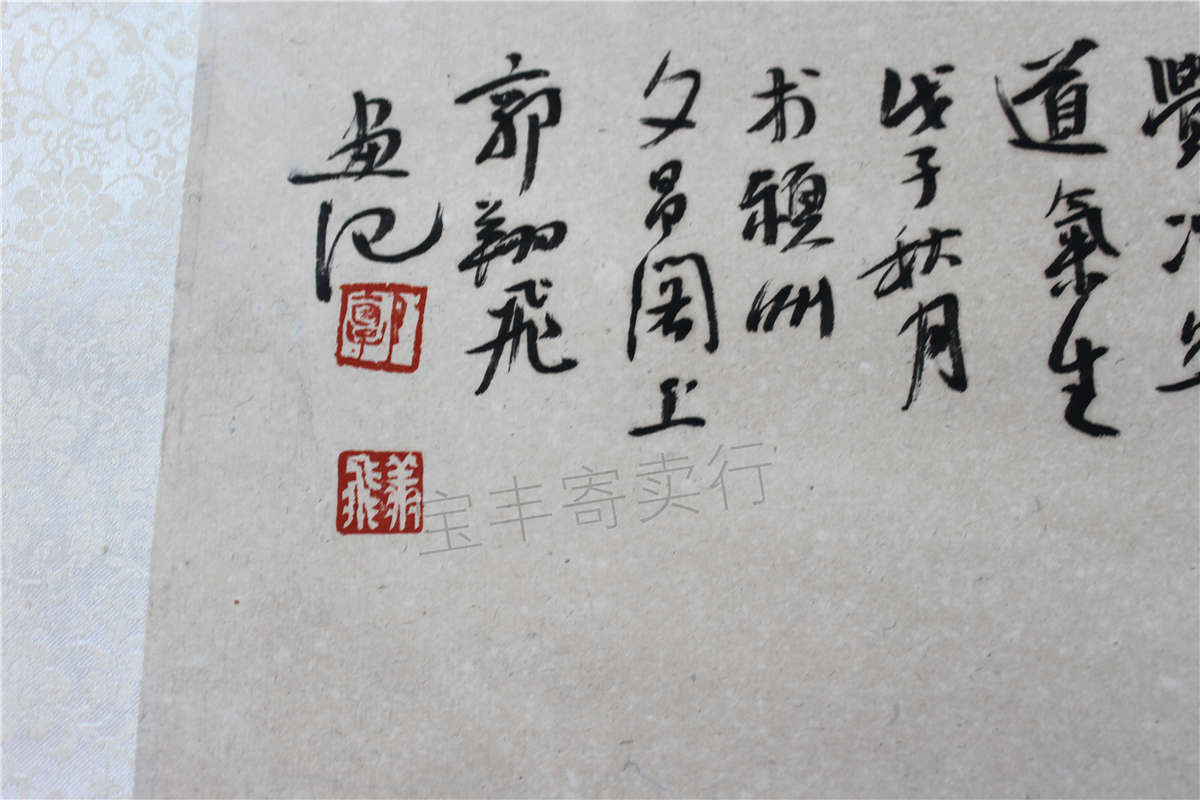 覺
道氣生
戊子秋月
於穎州
文昌閣上
郭翔飛
畫记
郭
翔飛
宝丰寄卖行